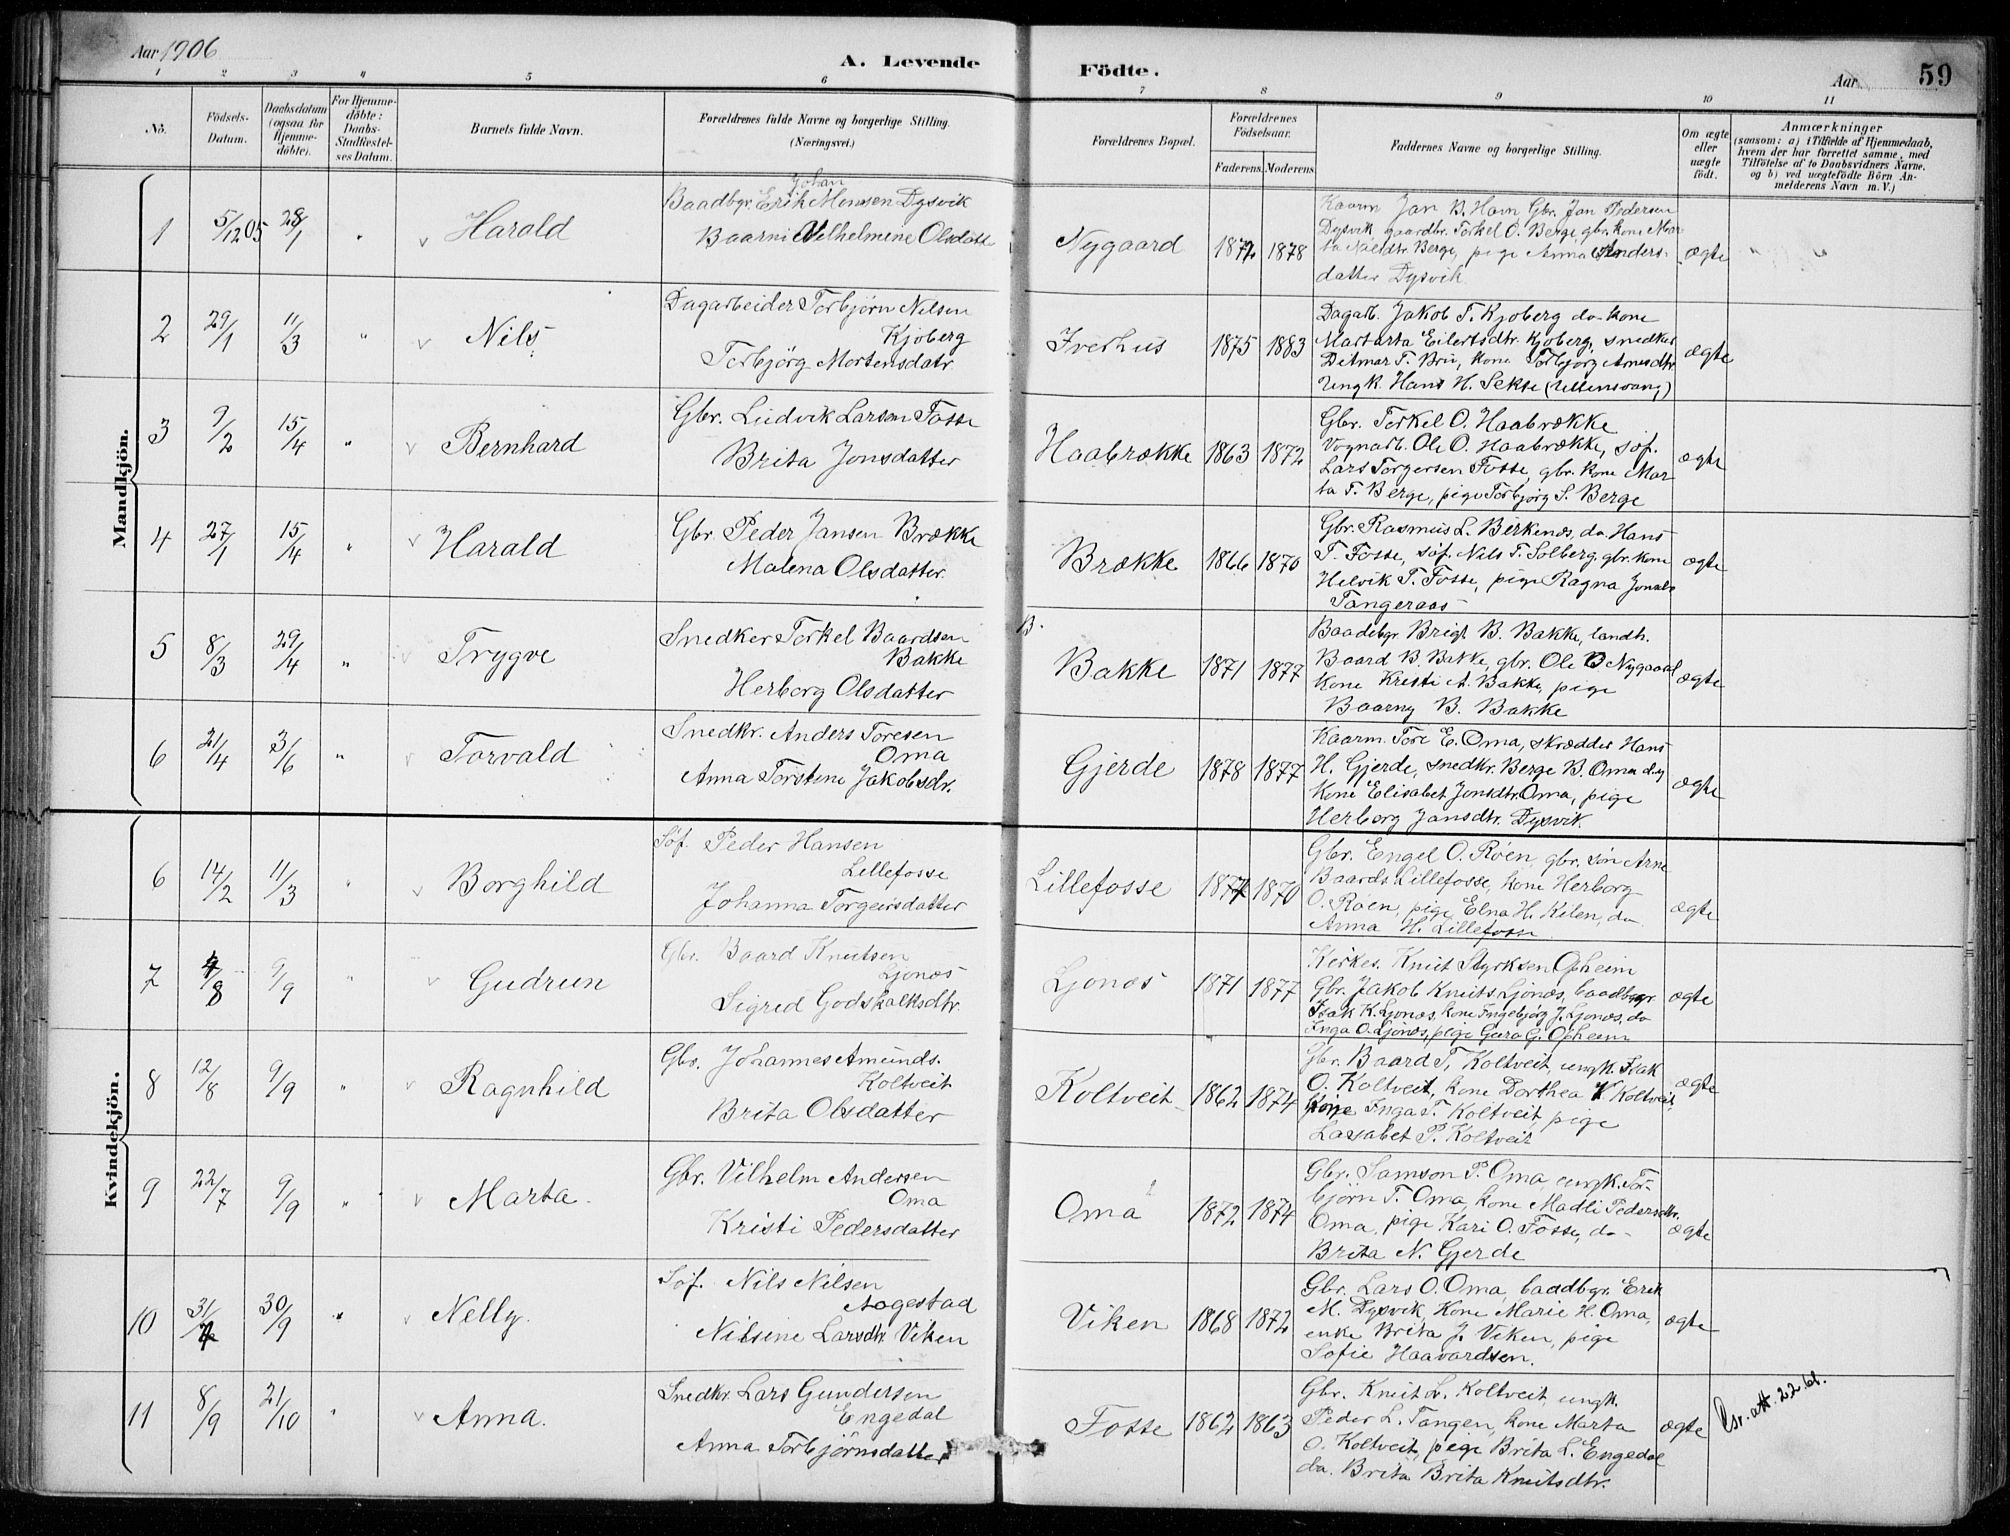 Aar 1906
A. Levende Födte.
Aar
59
1 2 3 4 5 6 7 8 9 10 11
No.
Födsels-Datum.
Daabsdatum (ogsaa for Hjemme-döbte).
For Hjemme-döbte: Daabs-Stadfæstel-ses Datum.
Barnets fulde Navn.
Forældrenes fulde Navne og borgerlige Stilling.
(Næringsvei.)
Forældrenes Bopæl.
Forældrenes Födselsaar.
Faderens. Moderens.
Faddernes Navne og borgerlige Stilling.
Om ægte eller uægte födt.
Anmærkninger
(saasom: a) i Tilfælde af Hjemmedaab,
hvem der har forrettet samme, med
Tilföielse af to Daabsvidners Navne.
og b) ved uægtefödte Börn An-
melderens Navn m. V.)
Mandkjön.
1 5/12 05 28/1 " Harald
Johan
Baadbgr. Erik Monsen Dysvik
Baarni Vilhelmine Olsdatte
Nygaard 1872 1878
Kaarm Jan B. Ham Gbr. Jan Pedersen
Dysvik gaardbr. Torkel O. Berge, gbr. kone Mar
Berge, pige Anna Anders-
datter Dysvik
ægte
2 29/1 11/3 " Nils
Dagarbeider Torbjörn Nilsen
Kjoberg
Torbjörg Mortensdatr.
Iverhus 1875 1883
Dagarb. Jakob T. Kjoberg do kone
Martarta Eilertsdtr. Kjoberg, snedker
Ditmar T. Bru, kone Torbjörg Arnesdtr
Ungk. Hans H. Sekse (Ullensvang)
ægte
3 9/2 15/4 " Bernhard
Gbr. Ludvik Larsen Fosse
Brita Jonsdatter
Haabrække 1863 1872
Gbr. Torkel O. Haabrække
Vognarb. Ole O. Haabrække, söf.
Lars Torgersen Fosse, gbr. kone Mar
ta T. Berge, pige Torbjörg S. Berge
ægte
4 27/1 15/4 " Harald
Gbr. Peder Jansen Brække
Malena Olsdatter
Brække 1866 1870
Gbr. Rasmus L. Birkenæs, do Hans
T. Fosse, söf. Nils T. Solberg, gbr. kone
Helvik T. Fosse, pige Ragna
Tangeraas
ægte
5 8/3 29/4 " Trygve
Snedker Torkel Baardsen
Bakke
Herborg Olsdatter
B.
Bakke 1871 1877
Baadebgr. Brigt B. Bakke, landh.
Baard B. Bakke, gbr. Ole B Nygaard
Kone Kristi A. Bakke, pige
Baarny B. Bakke
ægte
6 21/4 3/6 " Torvald
Snedkr. Anders Toresen
Oma
Anna Torstine Jakobsdr.
Gjerde 1878 1877
Kaarm. Tore E. Oma, skrædder Hans
H. Gjerde, snedkr. Berge B. Oma
Kone Elisabet Jonsdtr. Oma, pige
Herborg Jansdtr. Dysvik.
ægte
Kvindekjön.
6 14/2 11/3 " Borghild
Söf. Peder Hansen
Lillefosse
Johanna Torgeirsdatter
Lillefosse 1874 1870
Gbr. Engel O. Röen, gbr. sön Arne
Baards. Lillefosse, kone Herborg
O. Röen, pige Elna H. Kilen, do
Anna H. Lillefosse
ægte
7 4/8 9/9 " Gudrun
Gbr. Baard Knutsen
Ljonæs
Sigrid Godskalksdtr.
Ljonæs 1871 1877
Kirkes. Knut Styrksen Opheim
Gbr. Jakob Knuts. Ljonæs, baadbygr
Isak K. Ljonæs, kone Ingebjörg J. Ljonæs, do
Inga O. Ljonæs, pige Guro G. Opheim
ægte
8 12/8 9/9 " Ragnhild
Gbr. Johannes Amunds.
Koltveit
Brita Olsdatter
Koltveit 1862 1874
Gbr. Baard T. Koltveit, ungk. Isak
O. Koltveit, kone Dorthea K Koltveit,
kone Inga T. Koltveit, pige
Lassabet P. Koltveit
ægte
9 22/7 9/9 " Marta
Gbr. Vilhelm Andersen
Oma
Kristi Pedersdatter
Oma 1872 1874
Gbr. Samson P. Oma, ungk. Tor-
björn T. Oma, kone Madli Pedersdtr.
Oma, pige Kari O. Fosse, do
Brita N. Gjerde
ægte
10 31/7 30/9 " Nelly
Söf. Nils Nilsen
Aagestad
Nilsine Larsdtr. Viken
Viken 1868 1872
Gbr. Lars O. Oma, baadbgr. Erik
M. Dysvik, Kone Marie H. Oma,
enke Brita J. Viken, pige
Sofie Haavardsen.
ægte
11 8/9 21/10 " Anna.
Snedkr. Lars Gundersen
Engedal
Anna Torbjörnsdatter
Fosse 1862 1863
Gbr. Knut L. Koltveit, ungk.
Peder L. Tangen, kone Marta
O. Koltveit, pige Brita L. Engedal
do. Brita Brita Knutsdtr.
ægte
att. 22